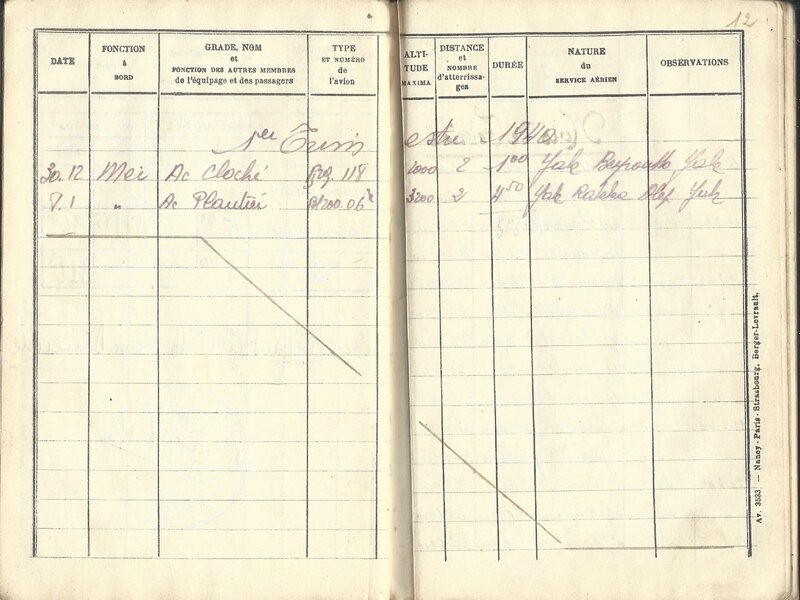 12
DATE
FONCTION
à
BORD
GRADE, NOM
et
FONCTION DES AUTRES MEMBRES
de l'équipage et des passagers
TYPE
ET NUMÉRO
de
l'avion
ALTI-
TUDE
MAXIMA
DISTANCE
et
NOMBRE
d'atterrissa-
ges
DURÉE
NATURE
du
SERVICE AÉRIEN
OBSERVATIONS
1er Trimestre 1940
30.12 Ac Cloché 118 1000 2 1 00 Beyrouth
7.1 " Ac Plantié 06 3200 2 4 50 Rakka Alep
Av. 3533 — Nancy-Paris-Strasbourg, Berger-Levrault.